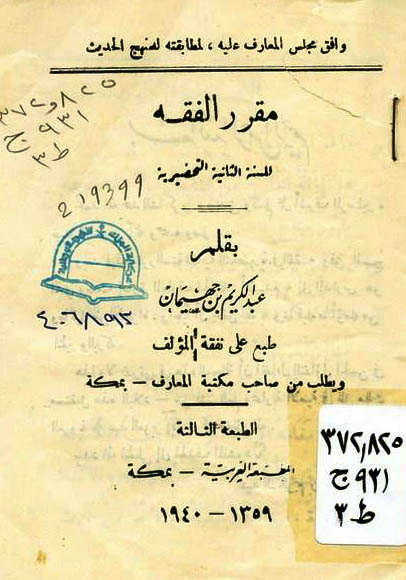 وافق مجلس المعارف عليه ، لمطابقته لمنهج الحديث
٣٧٢٫٨٢٥
ج ٩٣١
ط ٣
مقرر الفقه
للسنة الثانية التحضيرية
219399
بقلم
عبدالكريم بن جهيمان
٤٠٦/٨٩٣
طبع على نفقة المؤلف
ويطلب من صاحب مكتبة المعارف – بمكة
الطبعة الثالثة
المطبعة العربية – بمكة
١٣٥٩ – ١٩٤٠
٣٧٢٫٨٢٥
ج ٩٣١
ط ٣